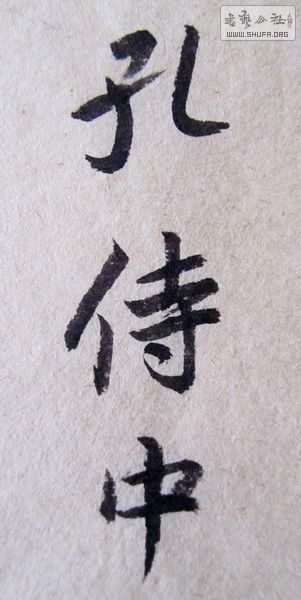 孔侍中
书艺公社
WWW.SHUFA.ORG